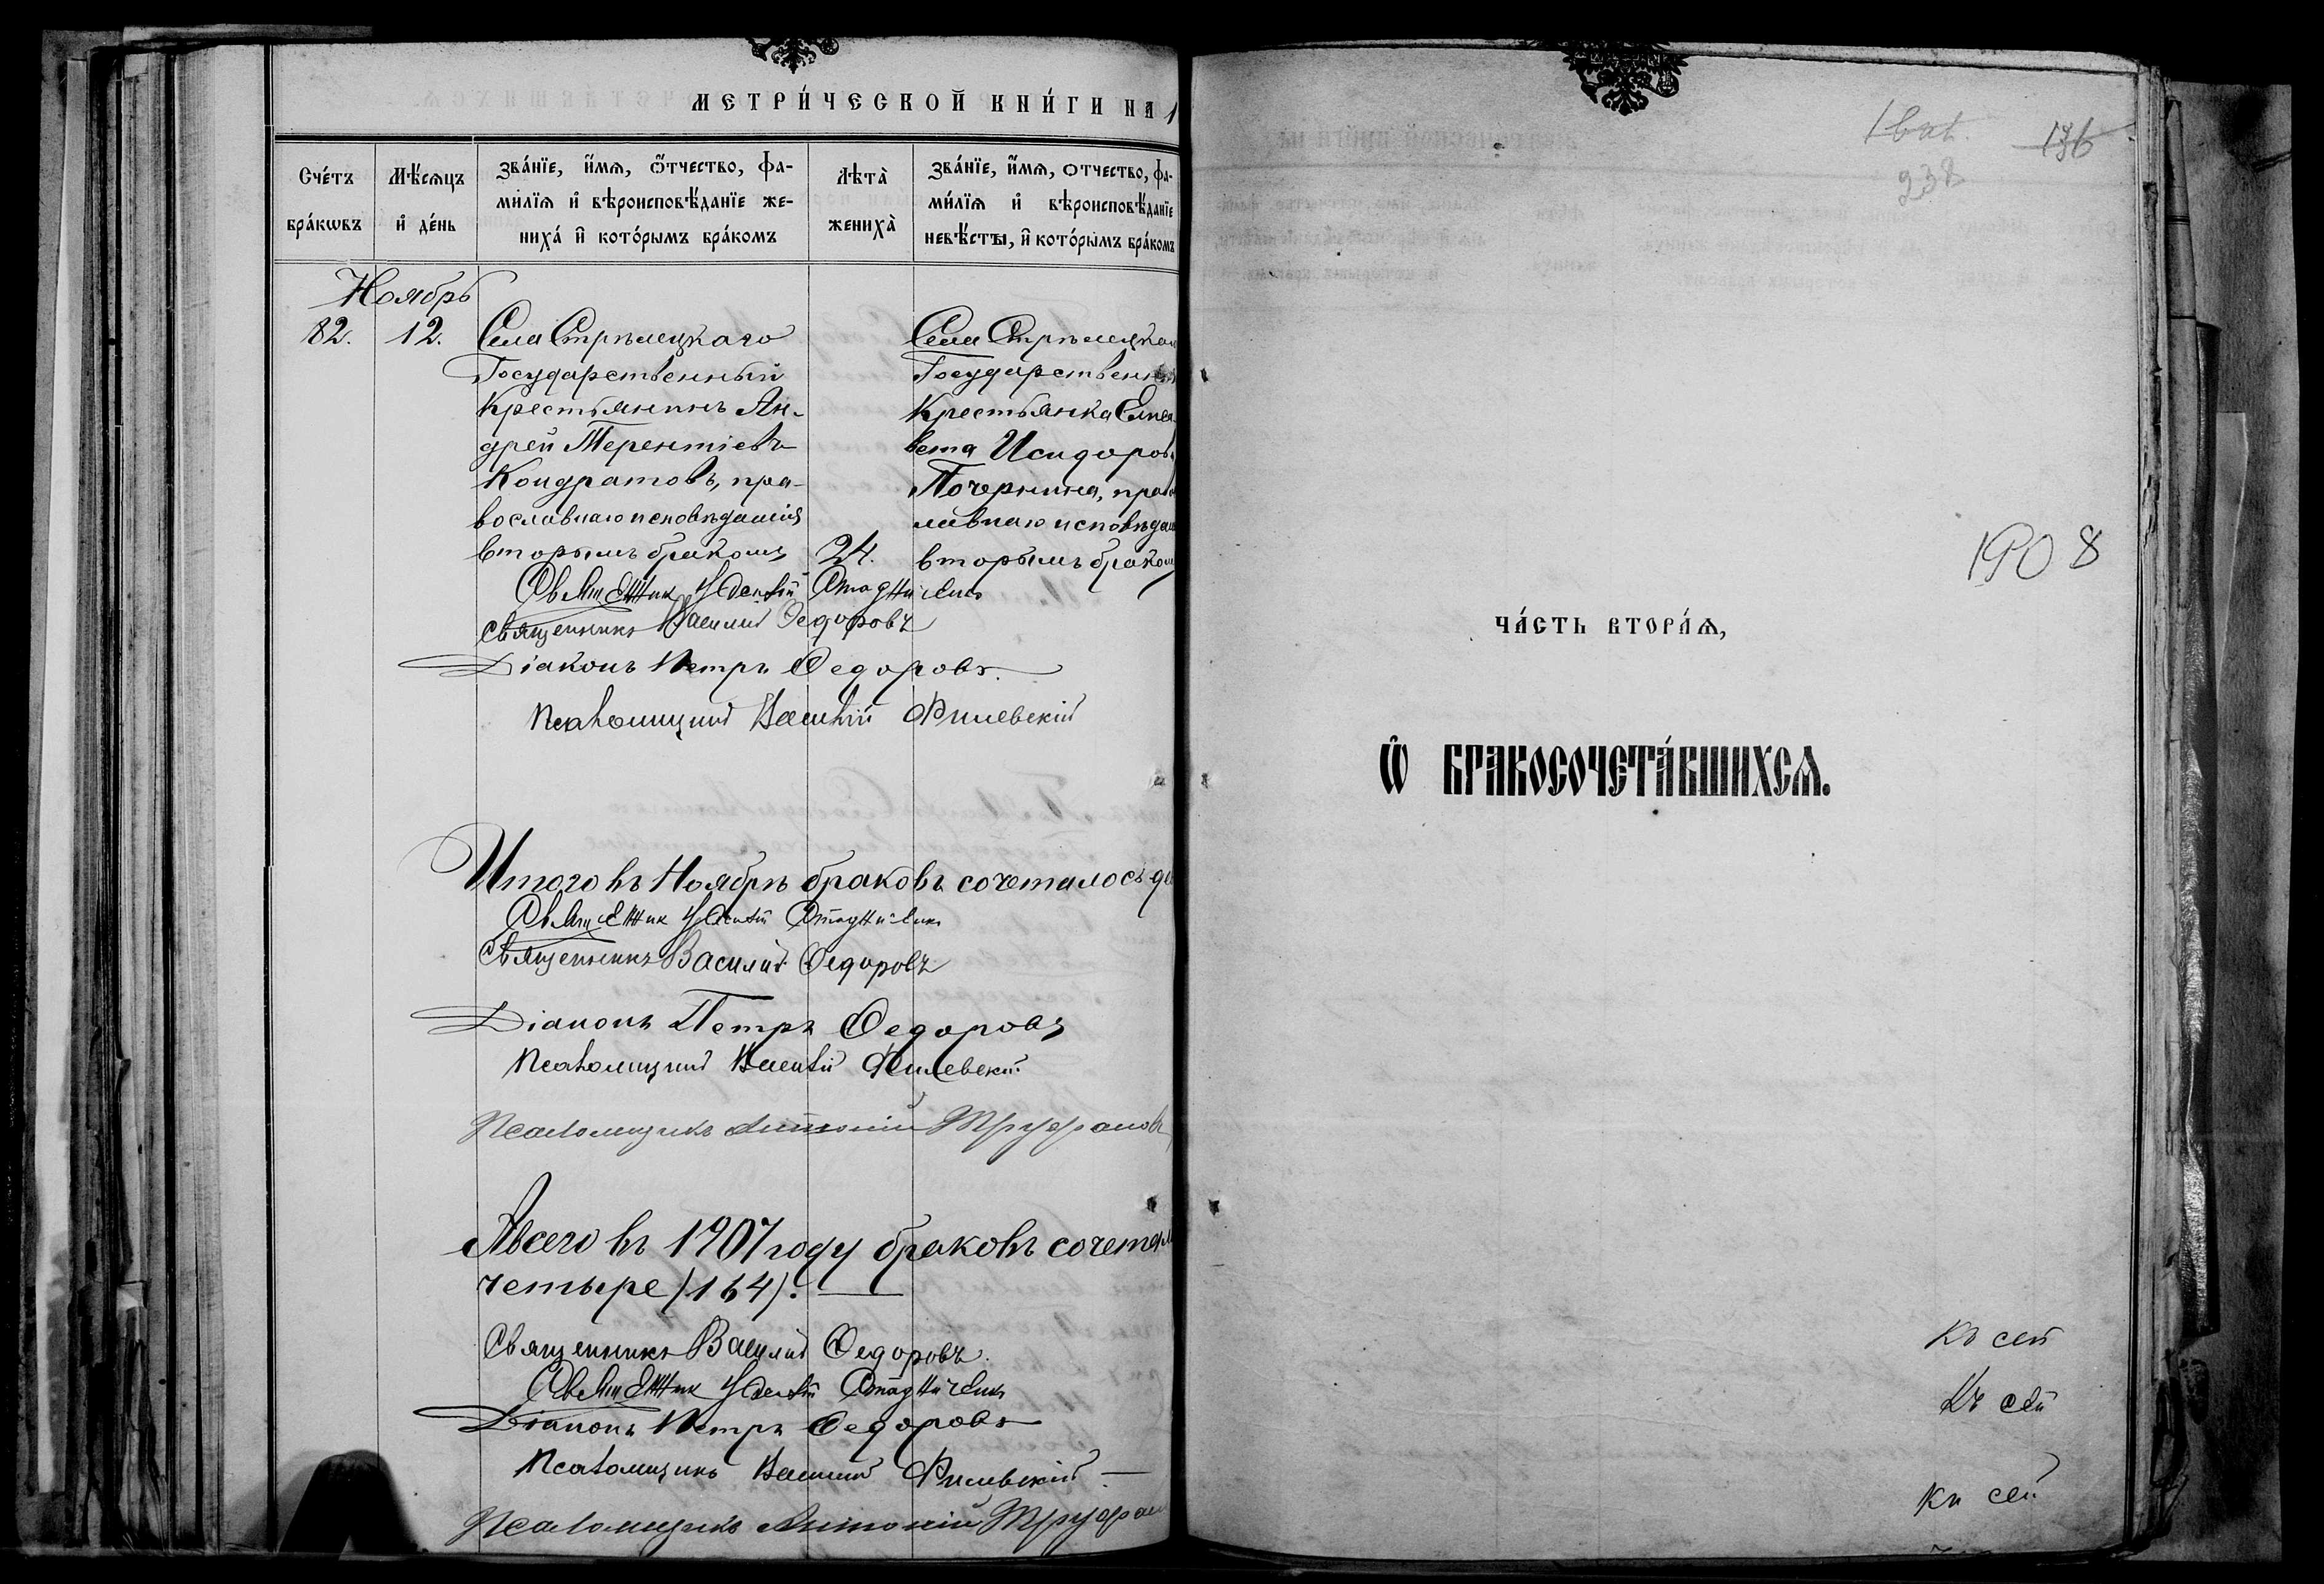 МЕТРИ́ЧЕСКОЙ КНИ́ГИ НА 1
Сче́тъ бра́кѡвъ
Мѣ́сѧцъ и҆ де́нь
Зва́нїе, и҆́мѧ, ѻ҆́тчество, фа-
ми́лїѧ и҆ вѣроисповѣ́данїе же-
ниха́ и҆ кото́рымъ бра́комъ
Лѣта̀ жениха̀
Зва́нїе, и҆́мѧ, отчество, фа-
ми́лїѧ и҆ вѣроисповѣ́данїе
невѣ́сты, и҆ кото́рымъ бра́комъ
Ноябрь
82.
12.
Села Стрѣлецкаго
Государственный
крестьянинъ Ан-
дрей Терентіевъ
Кондратовъ, пра-
вославнаго исповѣданія
вторымъ бракомъ
24.
Села Стрѣлецкаг
Государственн
крестьянка Елиса
вета Исидоров
Почернина, право
лавнаго исповѣдан
вторымъ браком
Священник
Священникъ Василій Федоровъ
Діаконъ Петръ Федоровъ.
Псаломщикъ Василій Филевскій
Итого въ Ноябрѣ браковъ сочеталось дв
Священник
Священникъ Василій Федоровъ
Діаконъ Петръ Федоровъ
Псаломщикъ Василій Филевскій
Псаломщикъ Антоній Труфановъ
А всего въ 1907 году браковъ сочетал
четыре (164).
Священникъ Василій Федоровъ.
Священник
Діаконъ Петръ Федоровъ
Псаломщикъ Василій Филевскій
Псаломщикъ Антоній Труфан
136
238
1908
ЧА́СТЬ ВТОРА́Ѧ,
Ѽ БРАКОСОЧЕТА́ВШИХСѦ.
Къ сей
Къ сей
Къ сей